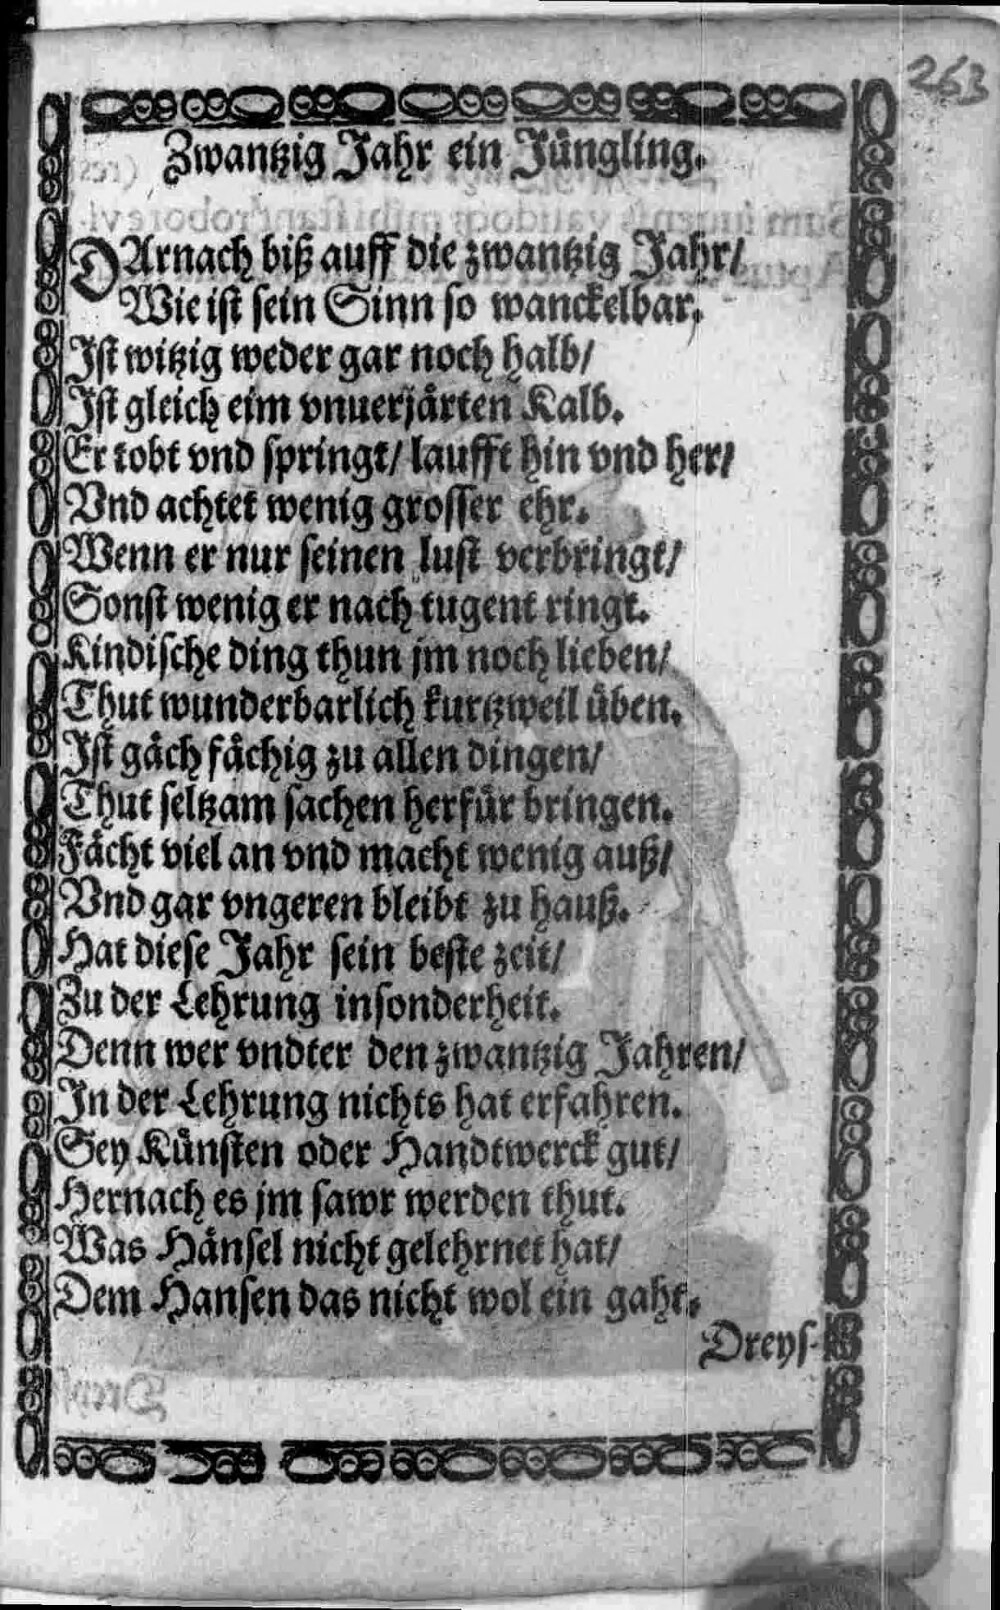 263
Zwantzig Jahr ein Jüngling.
DArnach biß auff die zwantzig Jahr/
Wie ist sein Sinn so wanckelbar,
Ist witzig weder gar noch halb/
Ist gleich eim vnuerjärten Kalb.
Er tobt vnd springt/ laufft hin vnd her/
Vnd achtet wenig grosser ehr.
Wenn er nur seinen lust verbringt/
Sonst wenig er nach tugent ringt.
Kindische ding thun jm noch lieben/
Thut wunderbarlich kurtzweil üben.
Ist gäch fächig zu allen dingen/
Thut seltzam sachen herfür bringen.
Fächt viel an vnd macht wenig auß/
Vnd gar vngeren bleibt zu hauß.
Hat diese Jahr sein beste zeit/
Zu der Lehrung insonderheit.
Denn wer vndter den zwantzig Jahren/
In der Lehrung nichts hat erfahren.
Sey Künsten oder Handtwerck gut/
Hernach es jm sawr werden thut.
Was Hänsel nicht gelehrnet hat/
Dem Hansen das nicht wol ein gaht.
Dreys-